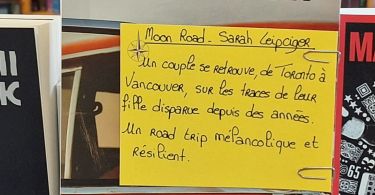 Moon Road - Sarah Leipciger
Un couple se retrouve, de Toronto à
Vancouver, sur les traces de leur
fille disparue depuis des années.
Un road trip mélancolique et
résilient.
MA
65